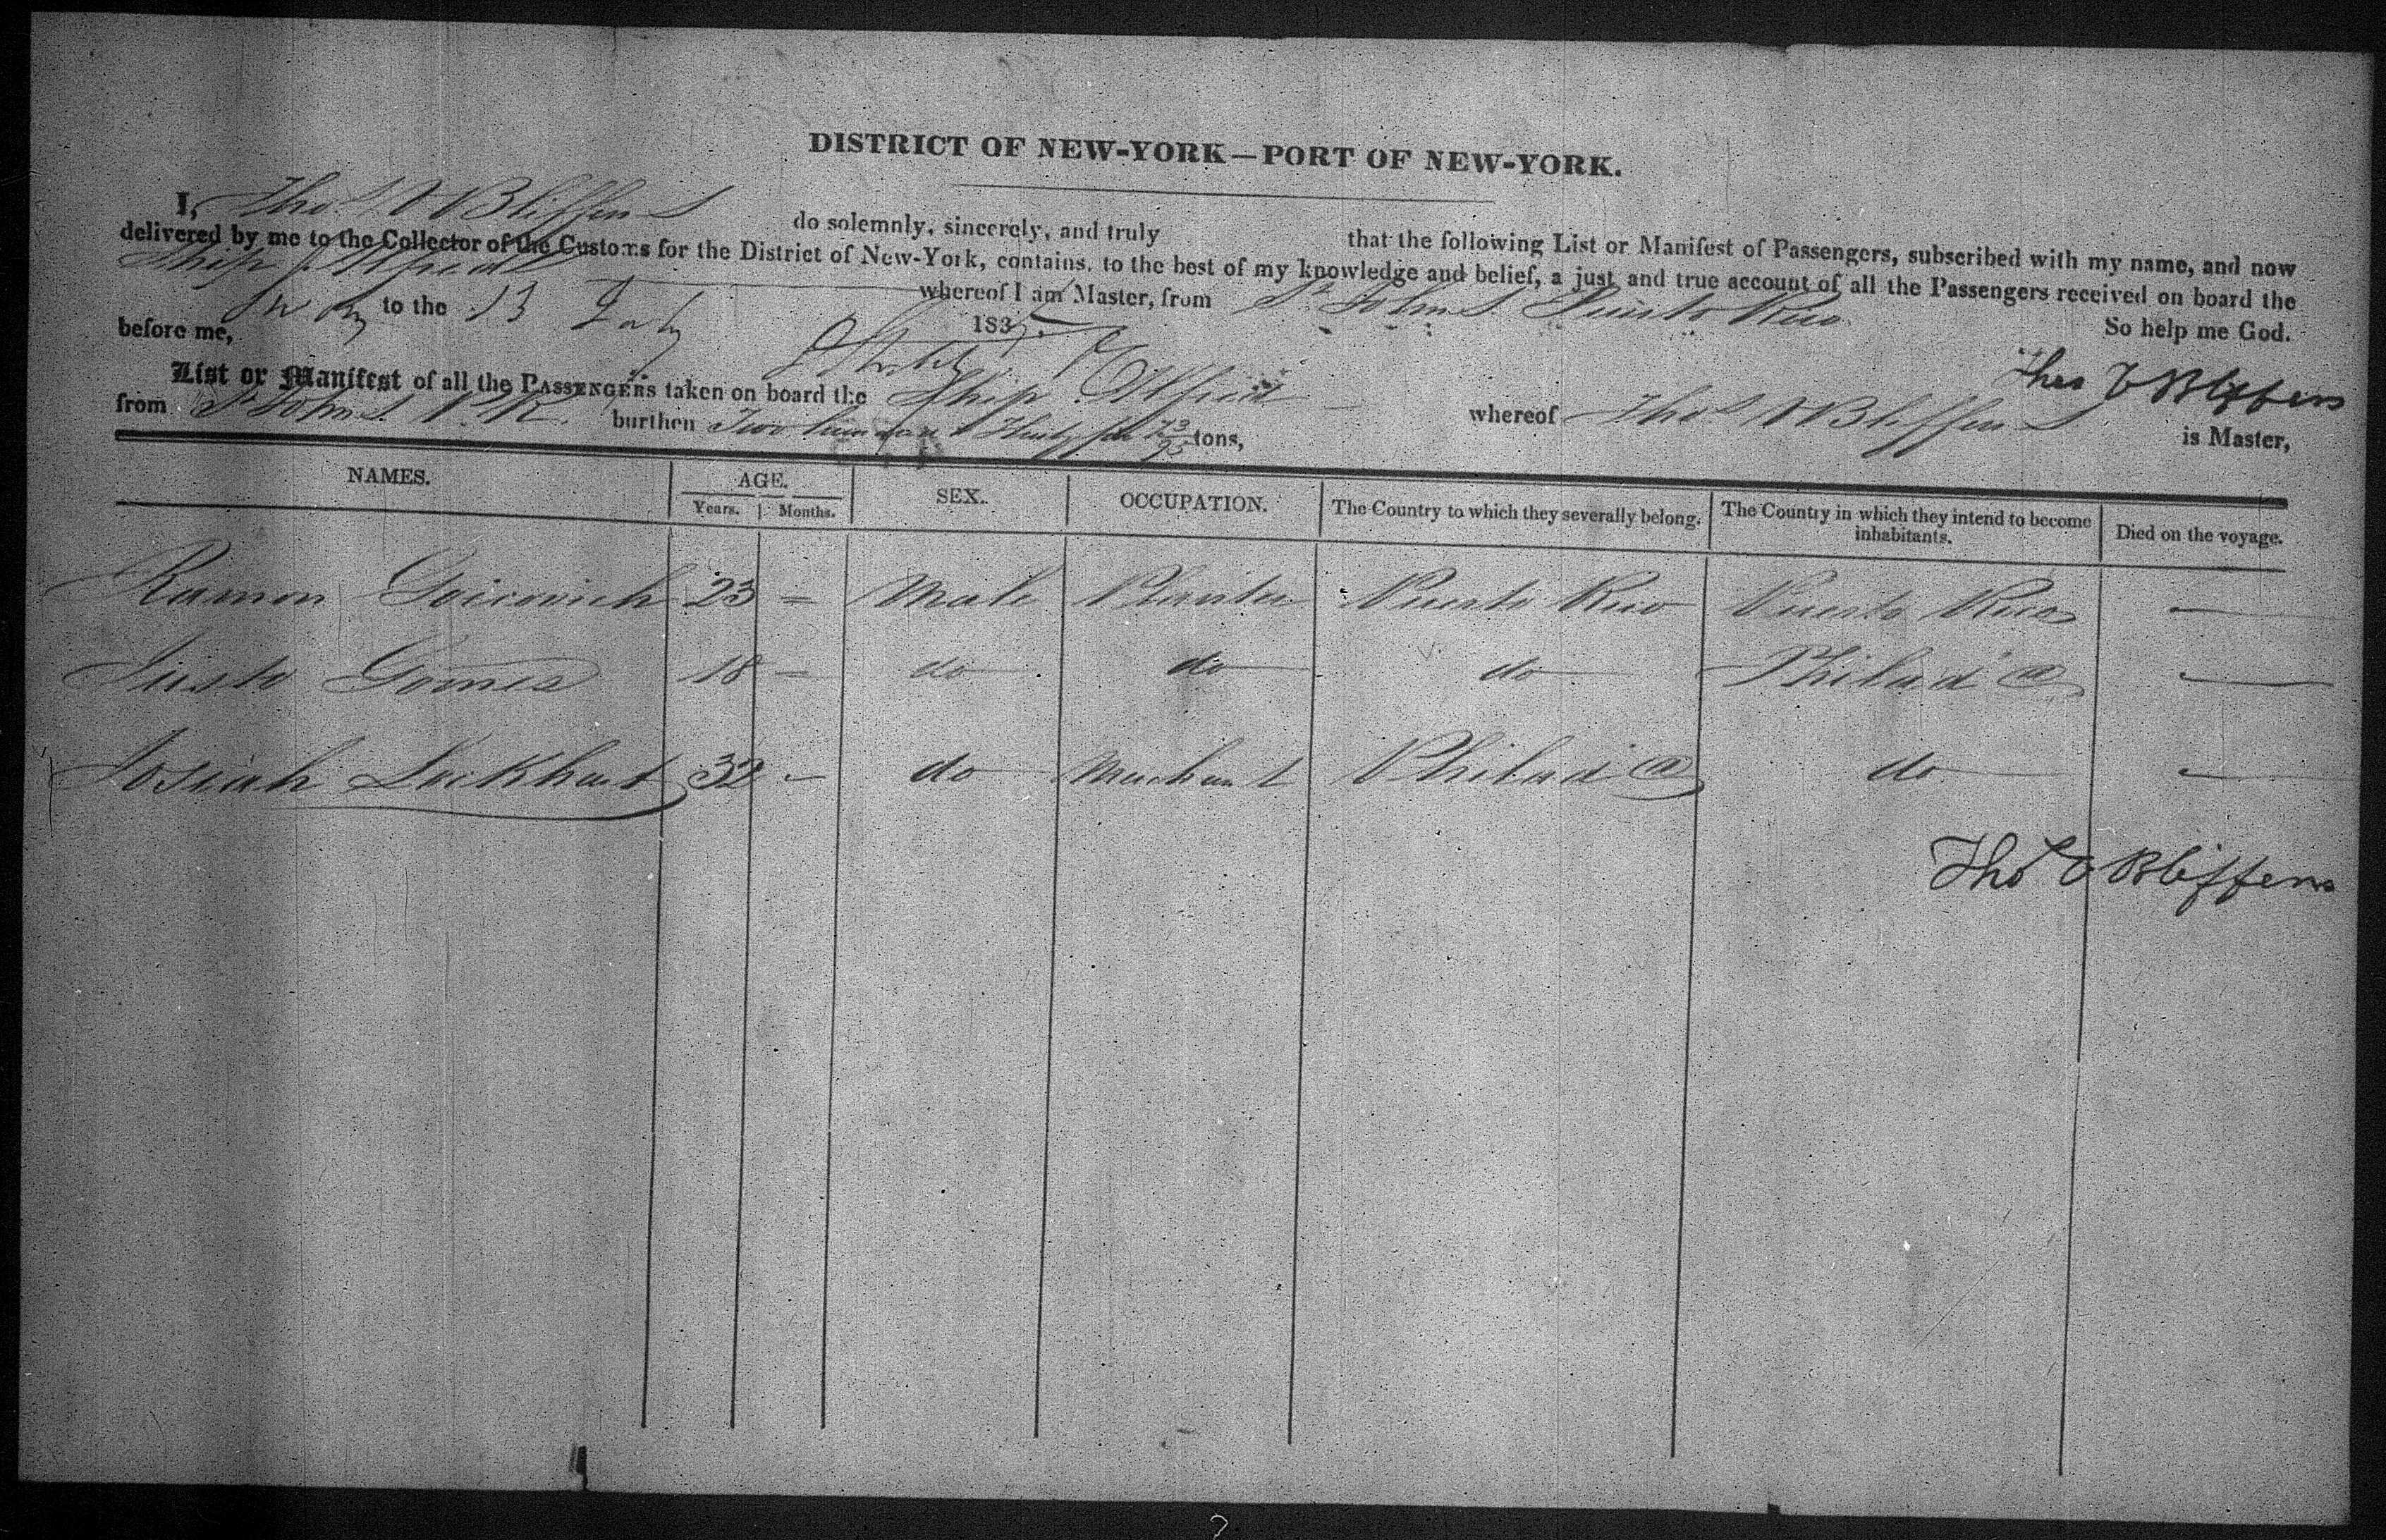 DISTRICT OF NEW-YORK—PORT OF NEW-YORK.
I, Thos V Bliffens do solemnly, sincerely, and truly that the following List or Manifest of Passengers, subscribed with my name, and now
delivered by me to the Collector of the Customs for the District of New-York, contains, to the best of my knowledge and belief, a just and true account of all the Passengers received on board the
Ship Alfred whereof I am Master, from St. Johns Puerto Rico
to the 13 July 183 So help me God.
before me,
Thos V Bliffens
List or Manifest of all the PASSENGERS taken on board the Ship Alfred whereof Thos V Bliffens is Master,
from St Johns P. R. burthen Two hundred & tons,
NAMES. AGE. SEX. OCCUPATION. The Country to which they severally belong. The Country in which they intend to become inhabitants. Died on the voyage.
Years. Months.
Ramon Goicovich 23 — Male Planter Puerto Rico Puerto Rico —
Justo Gomes 18 — do do do Philad a —
Josiah Lockhart 32 — do Merchant Philad a do —
Thos V Bliffens